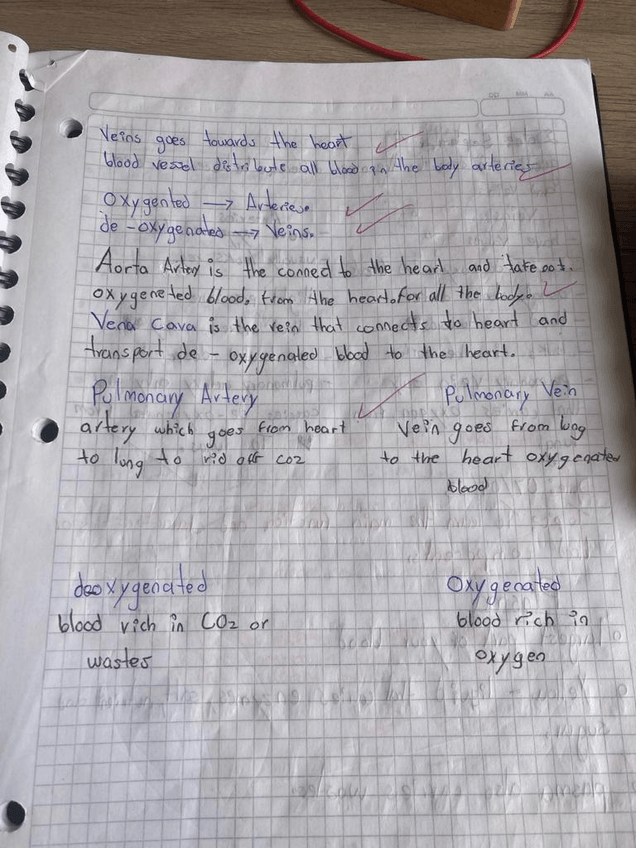 Veins goes towards the heart
blood vessel distribute all blood in the body arteries
Oxygented → Arteries.
de-oxygenated → Veins.
Aorta Artery is the conned to the heart and take out.
oxygeneted blood, from the heart. for all the body.
Vena Cava is the vein that connects to heart and
transport de-oxygenated blood to the heart.
Pulmonary Artery
artery which goes from heart
to long to rid off CO2
Pulmonary Vein
Vein goes from long
to the heart oxygenated
blood
deoxygenated
blood rich in CO2 or
wastes
Oxygenated
blood rich in
oxygen